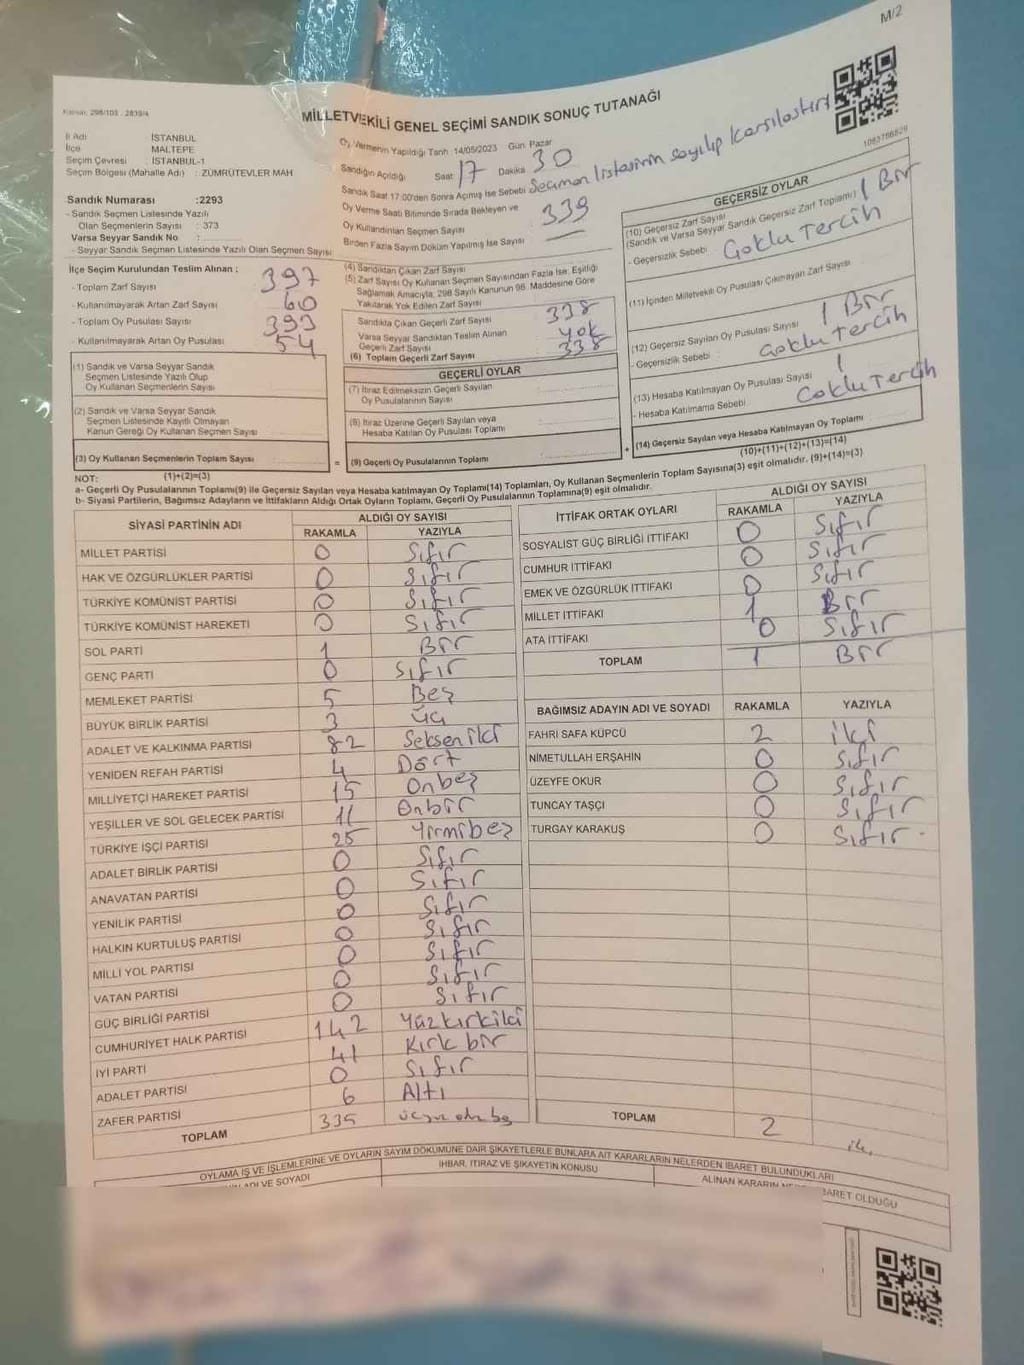 M/2
Kanun: 298/103 - 2839/4
MİLLETVEKİLİ GENEL SEÇİMİ SANDIK SONUÇ TUTANAĞI
İl Adı : İSTANBUL
İlçe : MALTEPE
Seçim Çevresi : İSTANBUL-1
Seçim Bölgesi (Mahalle Adı) : ZÜMRÜTEVLER MAH
Sandık Numarası :2293
- Sandık Seçmen Listesinde Yazılı
Olan Seçmenlerin Sayısı : 373
Varsa Seyyar Sandık No :
- Seyyar Sandık Seçmen Listesinde Yazılı Olan Seçmen Sayısı
Oy Vermenin Yapıldığı Tarih :14/05/2023 Gün Pazar
Sandığın Açıldığı Saat 17 Dakika 30
Sandık Saat 17:00'den Sonra Açımış İse Sebebi Seçmen listesinin sayılıp karşılaştırı
Oy Verme Saati Bitiminde Sırada Bekleyen ve
Oy Kullandırılan Seçmen Sayısı 339
Birden Fazla Sayım Döküm Yapılmış İse Sayısı —
1083766829
İlçe Seçim Kurulundan Teslim Alınan :
- Toplam Zarf Sayısı 397
- Kullanılmayarak Artan Zarf Sayısı 60
- Toplam Oy Pusulası Sayısı 393
- Kullanılmayarak Artan Oy Pusulası 54
(1) Sandık ve Varsa Seyyar Sandık
Seçmen Listesinde Yazılı Olup
Oy Kullanan Seçmenlerin Sayısı
(2) Sandık ve Varsa Seyyar Sandık
Seçmen Listesinde Kayıtlı Olmayan
Kanun Gereği Oy Kullanan Seçmen Sayısı
(3) Oy Kullanan Seçmenlerin Toplam Sayısı
(1)+(2)=(3)
(4) Sandıktan Çıkan Zarf Sayısı
(5) Zarf Sayısı Oy Kullanan Seçmen Sayısından Fazla İse, Eşitliği
Sağlamak Amacıyla, 298 Sayılı Kanunun 98. Maddesine Göre
Yakılarak Yok Edilen Zarf Sayısı
Sandıkta Çıkan Geçerli Zarf Sayısı 338
Varsa Seyyar Sandıktan Teslim Alınan
Geçerli Zarf Sayısı Yok
(6) Toplam Geçerli Zarf Sayısı 338
GEÇERLİ OYLAR
(7) İtiraz Edilmeksizin Geçerli Sayılan
Oy Pusulalarının Sayısı
(8) İtiraz Üzerine Geçerli Sayılan veya
Hesaba Katılan Oy Pusulası Toplamı
= (9) Geçerli Oy Pusulalarının Toplamı
GEÇERSİZ OYLAR
(10) Geçersiz Zarf Sayısı
(Sandık ve Varsa Seyyar Sandık Geçersiz Zarf Toplamı) 1 Bir
- Geçersizlik Sebebi : Çoklu Tercih
(11) İçinden Milletvekili Oy Pusulası Çıkmayan Zarf Sayısı
(12) Geçersiz Sayılan Oy Pusulası Sayısı 1 Bir
- Geçersizlik Sebebi : Çoklu Tercih
(13) Hesaba Katılmayan Oy Pusulası Sayısı 1
- Hesaba Katılmama Sebebi : Çoklu Tercih
+ (14) Geçersiz Sayılan veya Hesaba Katılmayan Oy Toplamı
(10)+(11)+(12)+(13)=(14)
NOT:
a- Geçerli Oy Pusulalarının Toplamı(9) ile Geçersiz Sayılan veya Hesaba katılmayan Oy Toplamı(14) Toplamları, Oy Kullanan Seçmenlerin Toplam Sayısına(3) eşit olmalıdır. (9)+(14)=(3)
b- Siyasi Partilerin, Bağımsız Adayların ve İttifakların Aldığı Ortak Oyların Toplamı, Geçerli Oy Pusulalarının Toplamına(9) eşit olmalıdır.
SİYASİ PARTİNİN ADI ALDIĞI OY SAYISI
RAKAMLA YAZIYLA
MİLLET PARTİSİ 0 Sıfır
HAK VE ÖZGÜRLÜKLER PARTİSİ 0 Sıfır
TÜRKİYE KOMÜNİST PARTİSİ 0 Sıfır
TÜRKİYE KOMÜNİST HAREKETİ 0 Sıfır
SOL PARTİ 1 Bir
GENÇ PARTİ 0 Sıfır
MEMLEKET PARTİSİ 5 Beş
BÜYÜK BİRLİK PARTİSİ 3 Üç
ADALET VE KALKINMA PARTİSİ 82 Seksen iki
YENİDEN REFAH PARTİSİ 4 Dört
MİLLİYETÇİ HAREKET PARTİSİ 15 Onbeş
YEŞİLLER VE SOL GELECEK PARTİSİ 11 Onbir
TÜRKİYE İŞÇİ PARTİSİ 25 Yirmibeş
ADALET BİRLİK PARTİSİ 0 Sıfır
ANAVATAN PARTİSİ 0 Sıfır
YENİLİK PARTİSİ 0 Sıfır
HALKIN KURTULUŞ PARTİSİ 0 Sıfır
MİLLİ YOL PARTİSİ 0 Sıfır
VATAN PARTİSİ 0 Sıfır
GÜÇ BİRLİĞİ PARTİSİ 0 Sıfır
CUMHURİYET HALK PARTİSİ 142 Yüzkırkiki
İYİ PARTİ 41 Kırk bir
ADALET PARTİSİ 0 Sıfır
ZAFER PARTİSİ 6 Altı
TOPLAM 335
İTTİFAK ORTAK OYLARI ALDIĞI OY SAYISI
RAKAMLA YAZIYLA
SOSYALİST GÜÇ BİRLİĞİ İTTİFAKI 0 Sıfır
CUMHUR İTTİFAKI 0 Sıfır
EMEK VE ÖZGÜRLÜK İTTİFAKI 0 Sıfır
MİLLET İTTİFAKI 1 Bir
ATA İTTİFAKI 0 Sıfır
TOPLAM 1 Bir
BAĞIMSIZ ADAYIN ADI VE SOYADI RAKAMLA YAZIYLA
FAHRİ SAFA KÜPCÜ 2 İki
NİMETULLAH ERŞAHİN 0 Sıfır
ÜZEYFE OKUR 0 Sıfır
TUNCAY TAŞÇI 0 Sıfır
TURGAY KARAKUŞ 0 Sıfır
TOPLAM 2 iki
OYLAMA İŞ VE İŞLEMLERİNE VE OYLARIN SAYIM DÖKÜMÜNE DAİR ŞİKAYETLERLE BUNLARA AİT KARARLARIN NELERDEN İBARET BULUNDUKLARI
ADI VE SOYADI İHBAR, İTİRAZ VE ŞİKAYETİN KONUSU ALINAN KARARIN NEDEN İBARET OLDUĞU